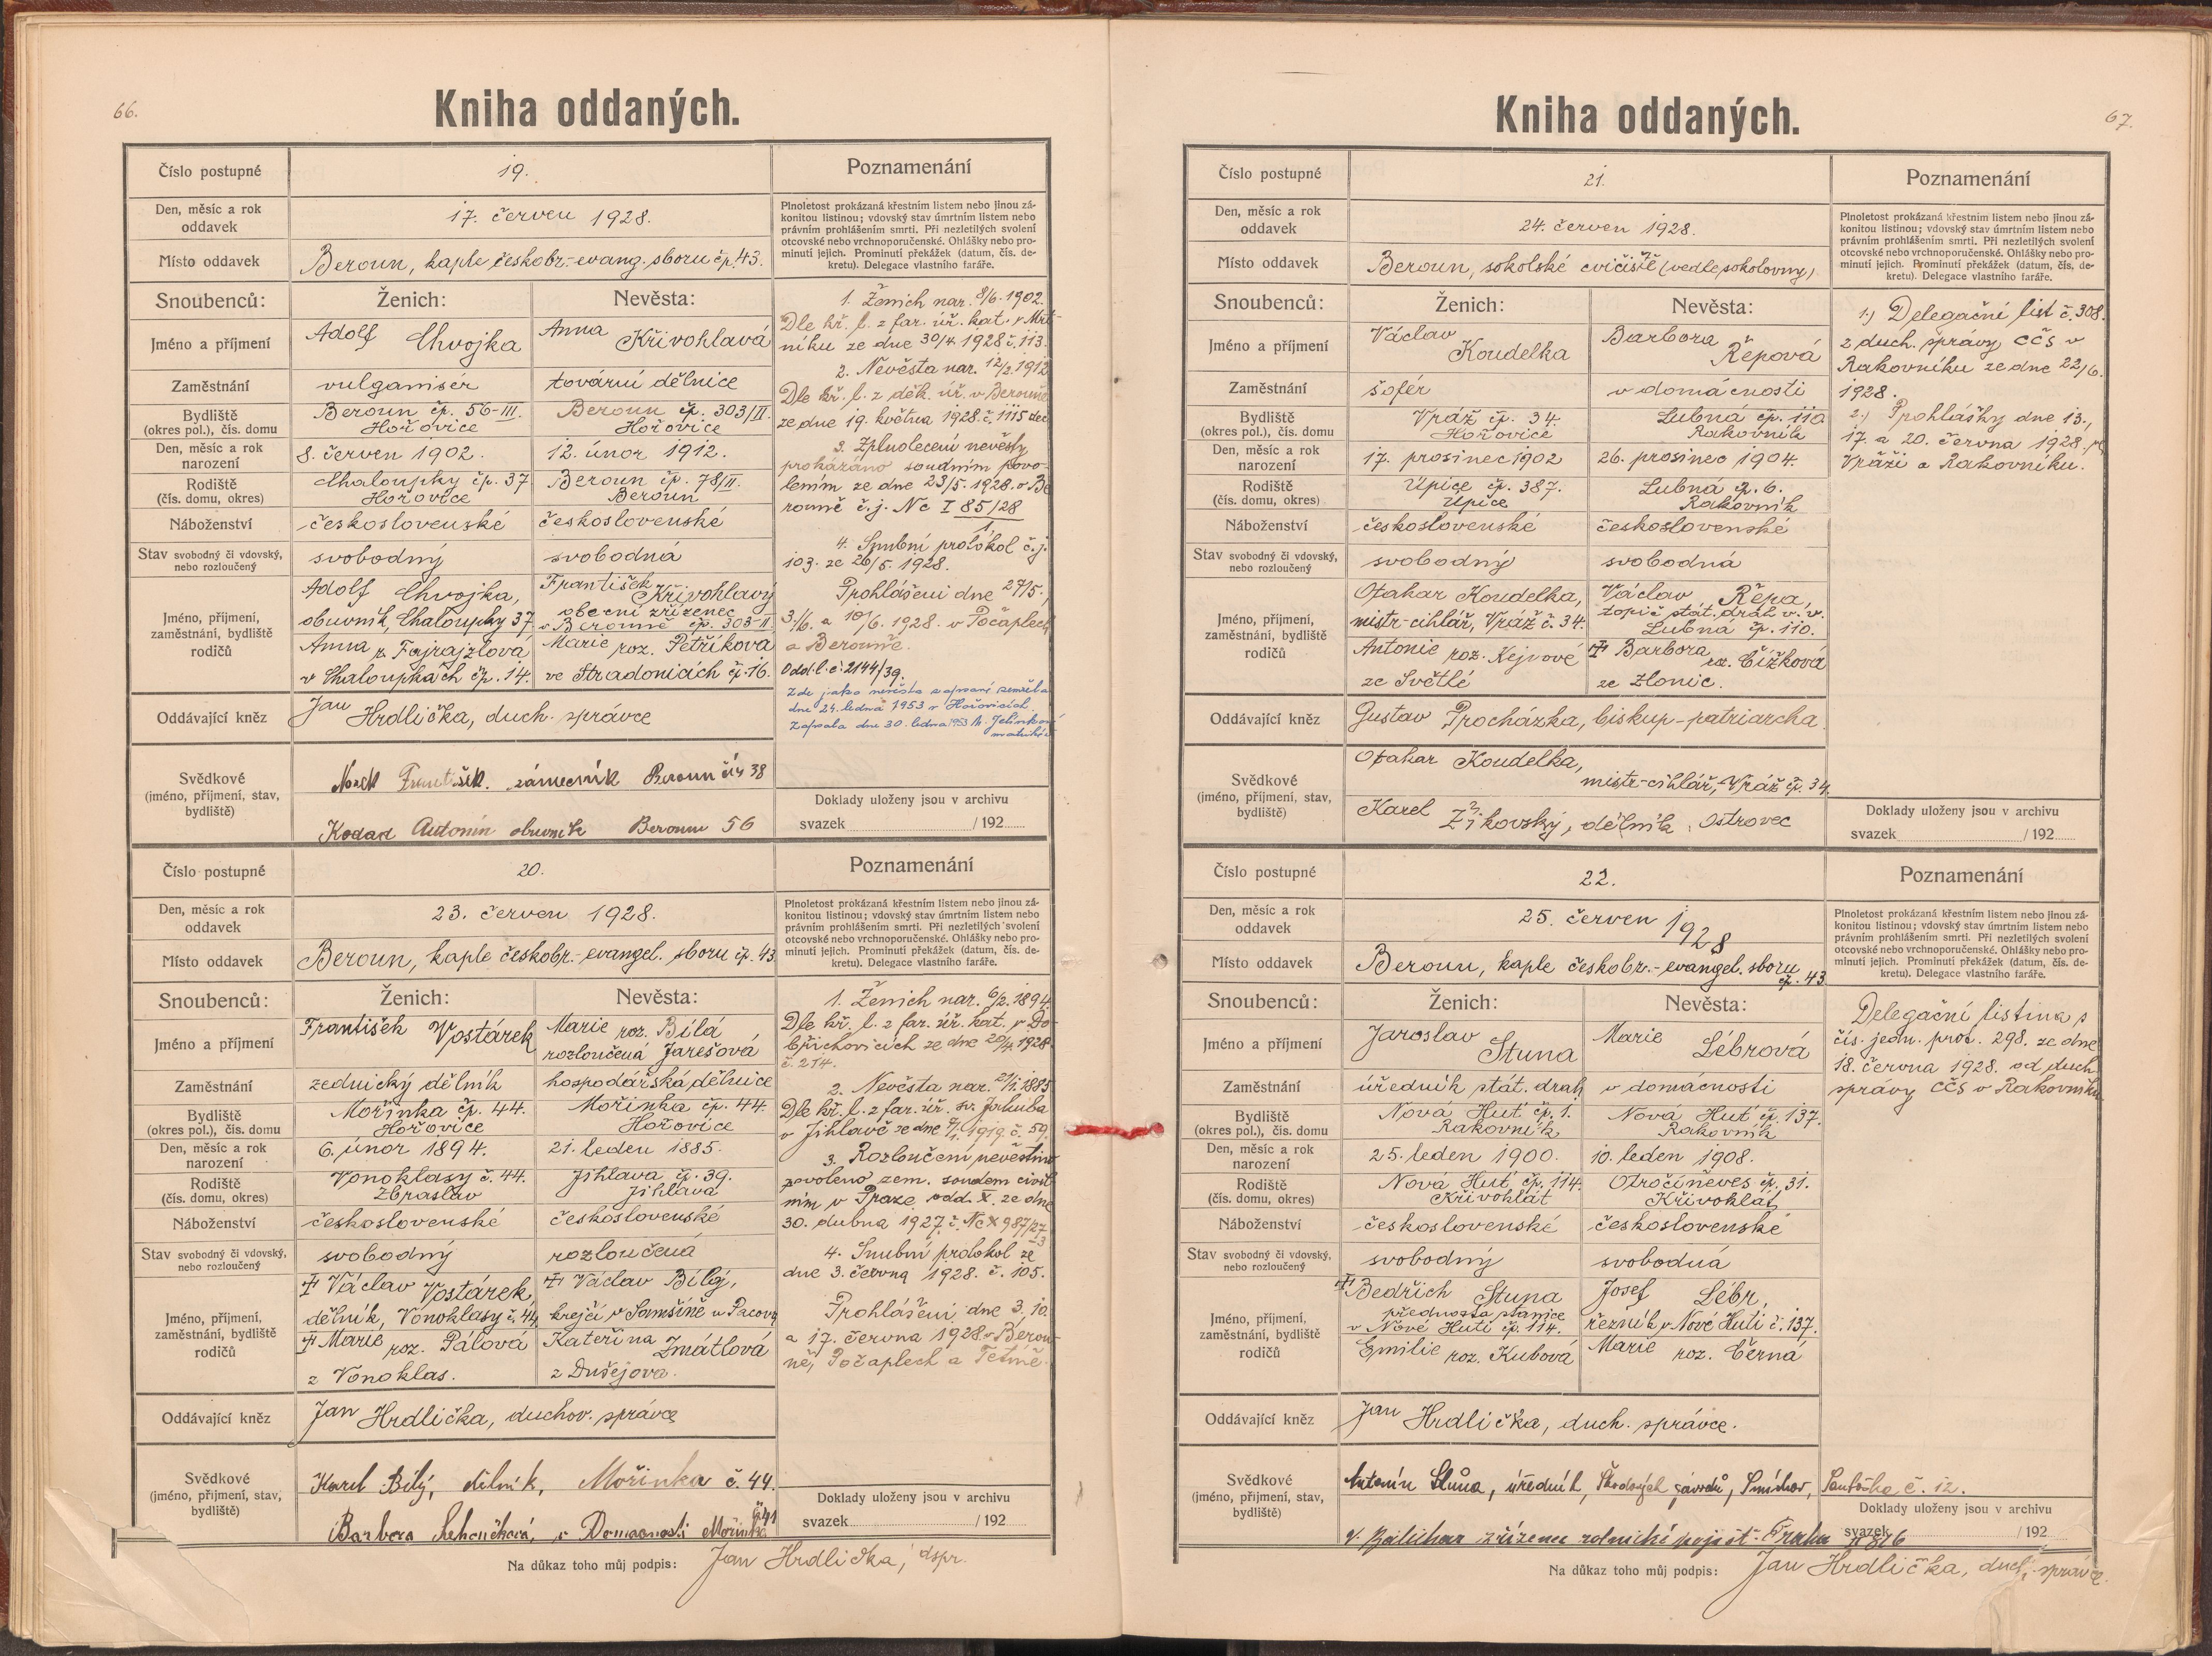 66.
Kniha oddaných.
Číslo postupné
19.
Poznamenání
Den, měsíc a rok
oddavek
17. červen 1928.
Plnoletost prokázaná křestním listem nebo jinou zá-
konitou listinou; vdovský stav úmrtním listem nebo
právním prohlášením smrti. Při nezletilých svolení
otcovské nebo vrchnoporučenské. Ohlášky nebo pro-
minutí jejich. Prominutí překážek (datum, čís. de-
kretu). Delegace vlastního faráře.
Místo oddavek
Beroun, kaple českobr.-evang. sboru čp. 43.
Snoubenců:
Ženich:
Nevěsta:
Jméno a příjmení
Adolf Chvojka
Anna Křivohlavá
Zaměstnání
vulganisér
tovární dělnice
Bydliště
(okres pol.), čís. domu
Beroun čp. 56-III.
Hořovice
Beroun čp. 303/II.
Hořovice
Den, měsíc a rok
narození
8. červen 1902.
12. únor 1912.
Rodiště
(čís. domu, okres)
Chaloupky čp. 37
Hořovice
Beroun čp. 78/II.
Beroun
Náboženství
československé
československé
Stav svobodný či vdovský,
nebo rozloučený
svobodný
svobodná
Jméno, příjmení,
zaměstnání, bydliště
rodičů
Adolf Chvojka,
obuvník, Chaloupky 37.
Anna r. Fajrajzlová
v Chaloupkách čp. 14.
František Křivohlavý
obecní zřízenec
v Berouně čp. 303-II.
Marie roz. Petříková
ve Stradonicích čp. 16.
Oddávající kněz
Jan Hrdlička, duch. správce
Svědkové
(jméno, příjmení, stav,
bydliště)
František. zámečník Beroun čís 38
Kodad Antonín obuvník Beroun 56
1. Ženich nar. 8/6. 1902.
Dle kř. l. z far. úř. kat. v Mrt-
níku ze dne 30/4. 1928 č. 113.
2. Nevěsta nar. 12/2. 1912
Dle kř. l. z děk. úř. v Berouně
ze dne 19. května 1928. č. 1115 dec
3. Zplnoletení nevěsty
prokázáno soudním povo-
lením ze dne 23/5. 1928. v Be
rouně č.j. Nc I 85/28
1.
4. Snubní protokol č.j.
103. ze 26/5. 1928.
Prohlášeni dne 27/5.,
3/6. a 10/6. 1928. v Počaplech
a Berouně.
Odd. l. č. 2144/39.
Zde jako nevěsta zapsaná zemřela
dne 24. ledna 1953 v Hořovicích.
Zapsala dne 30. ledna 1953 M. Jelínková
matrikářka
Doklady uloženy jsou v archivu
svazek /192
Číslo postupné
20.
Poznamenání
Den, měsíc a rok
oddavek
23. červen 1928.
Plnoletost prokázaná křestním listem nebo jinou zá-
konitou listinou; vdovský stav úmrtním listem nebo
právním prohlášením smrti. Při nezletilých svolení
otcovské nebo vrchnoporučenské. Ohlášky nebo pro-
minutí jejich. Prominutí překážek (datum, čís. de-
kretu). Delegace vlastního faráře.
Místo oddavek
Beroun, kaple českobr.-evangel. sboru čp. 43
Snoubenců:
Ženich:
Nevěsta:
Jméno a příjmení
František Vostárek
Marie roz. Bílá,
rozloučená Jarešová
Zaměstnání
zednický dělník
hospodářská dělnice
Bydliště
(okres pol.), čís. domu
Mořinka čp. 44.
Hořovice
Mořinka čp. 44.
Hořovice
Den, měsíc a rok
narození
6. únor 1894.
21. leden 1885.
Rodiště
(čís. domu, okres)
Vonoklasy č. 44.
Zbraslav
Jihlava čp. 39.
Jihlava
Náboženství
československé
československé
Stav svobodný či vdovský,
nebo rozloučený
svobodný
rozloučená
Jméno, příjmení,
zaměstnání, bydliště
rodičů
Václav Vostárek,
dělník, Vonoklasy č. 44,
Marie roz. Pálová
z Vonoklas.
Václav Bílý,
krejčí v Samšíně u Pacova
Kateřina Zmátlová
z Dušejova.
Oddávající kněz
Jan Hrdlička, duchov. správce
Svědkové
(jméno, příjmení, stav,
bydliště)
Karel Bílý, dělník, Mořinka č. 44.
Barbora v Domácnosti Mořinka č 41
1. Ženich nar. 6/2. 1894.
Dle kř. l. z far. úř. kat. v Do-
břichovicích ze dne 20/4. 1928.
č. 214.
2. Nevěsta nar. 21/1. 1885
Dle kř. l. z far. úř. sv. Jakuba
v Jihlavě ze dne 9/1. 1919. č. 59.
3. Rozloučení nevěstino
povoleno zem. soudem civil
ním v Praze, odd. X. ze dne
30. dubna 1927. č. Nc X 987/27
-3
4. Snubní protokol ze
dne 3. června 1928. č. 105.
Prohlášeni dne 3, 10.
a 17. června 1928 v Berou-
ně, Počaplech a Tetíně.
Doklady uloženy jsou v archivu
svazek /192
Na důkaz toho můj podpis: Jan Hrdlička, dspr.
67.
Kniha oddaných.
Číslo postupné
21.
Poznamenání
Den, měsíc a rok
oddavek
24. červen 1928.
Plnoletost prokázaná křestním listem nebo jinou zá-
konitou listinou; vdovský stav úmrtním listem nebo
právním prohlášením smrti. Při nezletilých svolení
otcovské nebo vrchnoporučenské. Ohlášky nebo pro-
minutí jejich. Prominutí překážek (datum, čís. de-
kretu). Delegace vlastního faráře.
Místo oddavek
Beroun, sokolské cvičiště (vedle sokolovny)
Snoubenců:
Ženich:
Nevěsta:
Jméno a příjmení
Václav Koudelka
Barbora Řepová
Zaměstnání
šofér
v domácnosti
Bydliště
(okres pol.), čís. domu
Vráž čp. 34.
Hořovice
Lubná čp. 110
Rakovník
Den, měsíc a rok
narození
17. prosinec 1902
26. prosinec 1904.
Rodiště
(čís. domu, okres)
Úpice čp. 387.
Úpice
Lubná čp. 6.
Rakovník
Náboženství
československé
československé
Stav svobodný či vdovský,
nebo rozloučený
svobodný
svobodná
Jméno, příjmení,
zaměstnání, bydliště
rodičů
Otakar Koudelka,
mistr-cihlář, Vráž č. 34.
Antonie roz. Kejvové
ze Světlé
Václav Řepa,
topič stát. drah v. v.
Lubná čp. 110.
Barbora roz. Čížková
ze Zlonic.
Oddávající kněz
Gustav Procházka, biskup-patriarcha.
Svědkové
(jméno, příjmení, stav,
bydliště)
Otakar Koudelka,
mistr-cihlář, Vráž čp. 34.
Karel Žikovský, dělník, Ostrovec
1.) Delegační list č. 308.
z duch. správy CČS v
Rakovníku ze dne 22/6.
1928.
2.) Prohlášky dne 13.,
17. a 20. června 1928. ve
Vráži a Rakovníku.
Doklady uloženy jsou v archivu
svazek /192
Číslo postupné
22.
Poznamenání
Den, měsíc a rok
oddavek
25. červen 1928
Plnoletost prokázaná křestním listem nebo jinou zá-
konitou listinou; vdovský stav úmrtním listem nebo
právním prohlášením smrti. Při nezletilých svolení
otcovské nebo vrchnoporučenské. Ohlášky nebo pro-
minutí jejich. Prominutí překážek (datum, čís. de-
kretu). Delegace vlastního faráře.
Místo oddavek
Beroun, kaple českobr.-evangel. sboru čp. 43
Snoubenců:
Ženich:
Nevěsta:
Jméno a příjmení
Jaroslav Stuna
Marie Lébrová
Zaměstnání
úředník stát. drah
v domácnosti
Bydliště
(okres pol.), čís. domu
Nová Huť čp. 1.
Rakovník
Nová Huť čp. 137.
Rakovník
Den, měsíc a rok
narození
25. leden 1900.
10. leden 1908.
Rodiště
(čís. domu, okres)
Nová Huť čp. 114.
Křivoklát
Otročiněves čp. 31.
Křivoklát
Náboženství
československé
československé
Stav svobodný či vdovský,
nebo rozloučený
svobodný
svobodná
Jméno, příjmení,
zaměstnání, bydliště
rodičů
Bedřich Stuna
přednosta stanice
v Nové Huti čp. 114.
Emilie roz. Kubová
Josef Lébr,
řezník v Nové Huti č. 137.
Marie roz. Černá
Oddávající kněz
Jan Hrdlička, duch. správce.
Svědkové
(jméno, příjmení, stav,
bydliště)
Antonín Stuna, úředník, Škodových závodů, Smíchov, Santoška č. 12.
zřízenec rolnické pojišť. Praha
Delegační listina s
čís. jedn. prot. 298. ze dne
18. června 1928. od duch.
správy CČS v Rakovníku
Doklady uloženy jsou v archivu
svazek /192
Na důkaz toho můj podpis: Jan Hrdlička, duch. správce.